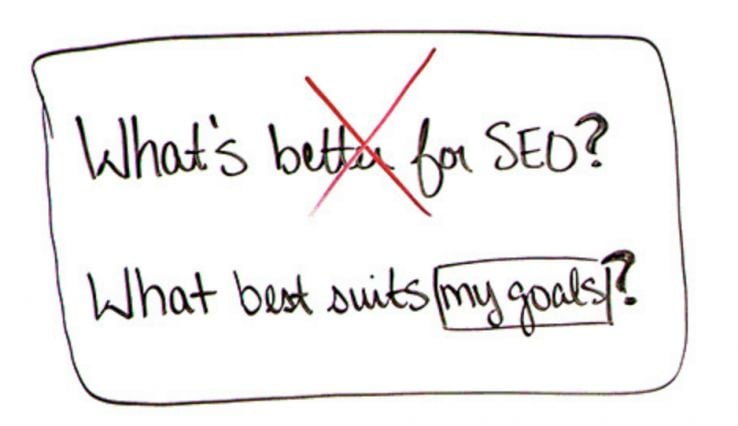 What's better for SEO?
What best suits my goals?